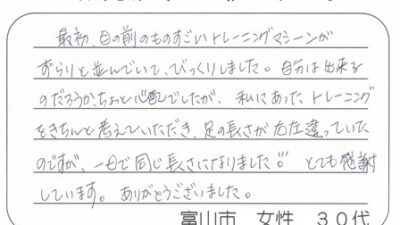 最初、目の前のものすごいトレーニングマシーンが
ずらりと並んでいて、びっくりしました。自分は出来る
のだろうか、ちょと心配でしたが、私にあったトレーニング
をきちんと考えていただき、足の長さが右左違っていた
のですが、一日で同じ長さになりました!!とても感謝
しています。ありがとうございました。
富山市 女性 30代